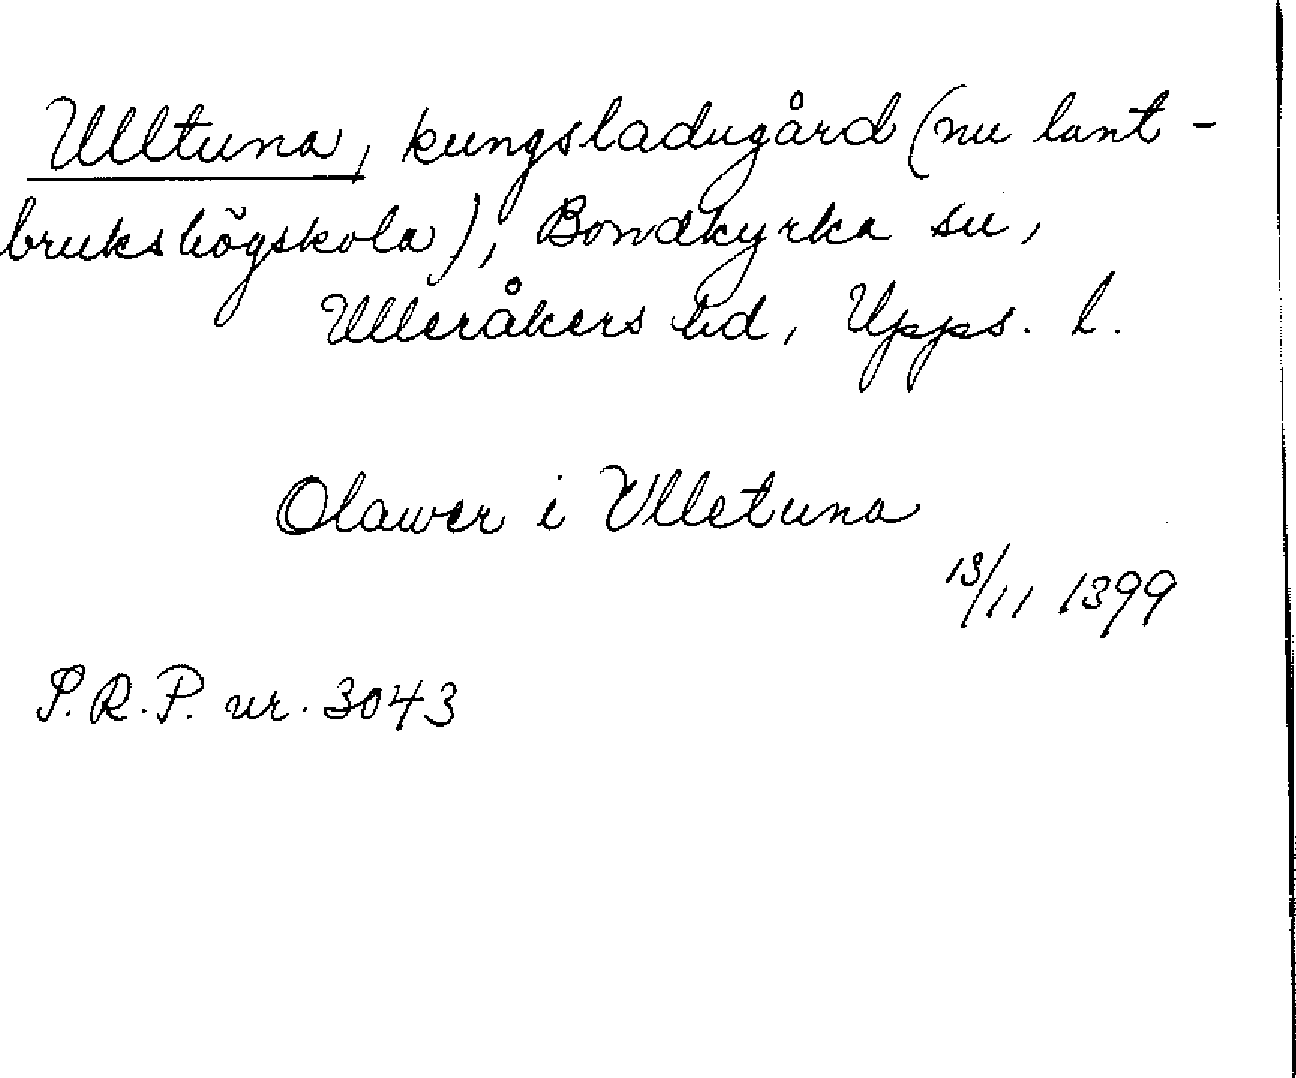 Ulltuna, kungsladugård (nu lant-
brukshögskola), Bondkyrka sn,
Ulleråkers hd, Upps. l.
Olawer i Vlletuna
13/11 1399
S.R.P. nr. 3043